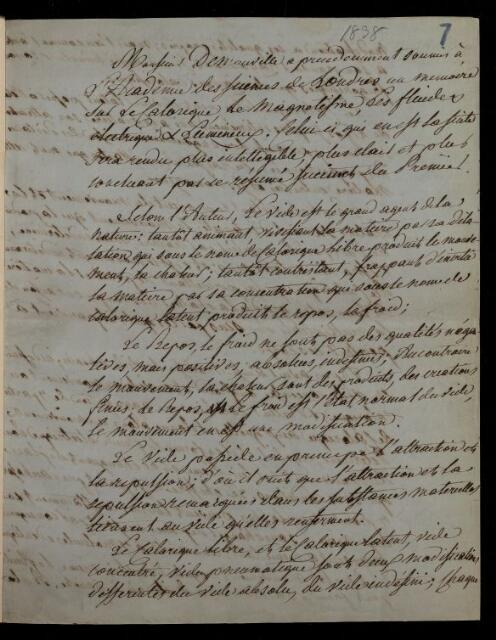 1838 7
Monsieur Demonville a précédemment soumis à
l'Academie des sciences de Londres un mémoire
sur le Calorique le Magnetisme les fluides
électrique & lumineux. Celui ci qui en est la suite
sera rendu plus intelligible, plus clair et plus
concluant par le résumé succinct du Premier.
Selon l'Auteur, Le vide est le grand agent de la
nature: tantôt animant, vivifiant la matière par sa dila-
tation qui sous le nom de Calorique libre produit le mouve-
ment, la chaleur; tantôt contristant, frappant d'inertie
la matière par sa concentration qui sous le nom de
Calorique latent produit le repos, le froid;
Le Repos, le froid ne sont pas des qualités néga-
tives, mais positives, absolues, indéfinies; Au contraire
le mouvement, la chaleur sont des produits, des creations
finies; le Repos, le froid est l'Etat normal du vide,
le mouvement en est une modification.
Le Vide possede en principe l'attraction et
la repulsion; d'où il suit que l'attraction et la
repulsion remarquées dans les substances materielles
tiennent au vide qu'elles renferment.
Le Calorique libre, et le Calorique latent, vide
concentré, vide pneumatique sont deux modifications
differentes du vide absolu, du vide indefini; chaque